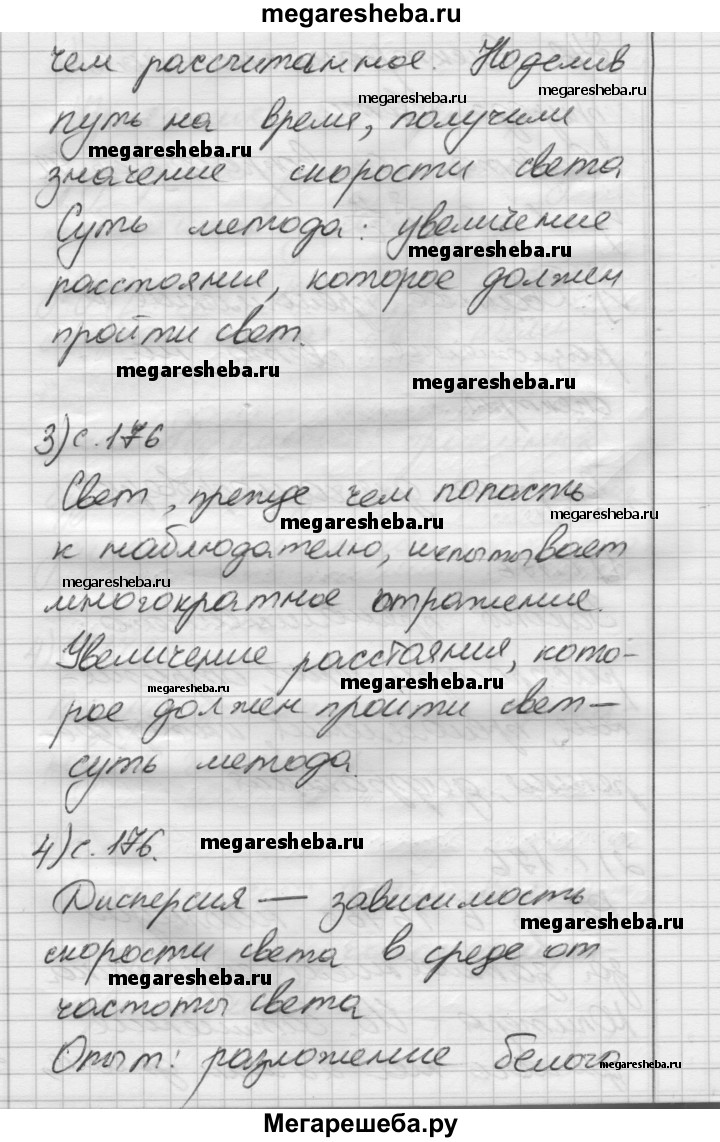 megaresheba.ru
чем рассчитанное. Поделив
megaresheba.ru
megaresheba.ru
путь на время, получили
megaresheba.ru
значение скорости света
Суть метода: увеличение
megaresheba.ru
расстояния, которое должен
пройти свет.
megaresheba.ru
megaresheba.ru
3) с. 176
Свет, прежде чем попасть
megaresheba.ru
megaresheba.ru
к наблюдателю, испытывает
megaresheba.ru
многократное отражение.
Увеличение расстояния, кото-
megaresheba.ru
megaresheba.ru
рое должен пройти свет —
суть метода.
megaresheba.ru
4) с. 176.
Дисперсия — зависимость
megaresheba.ru
скорости света в среде от
megaresheba.ru
частоты света
Опыт: разложение белого
megaresheba.ru
Мегарешеба.ру